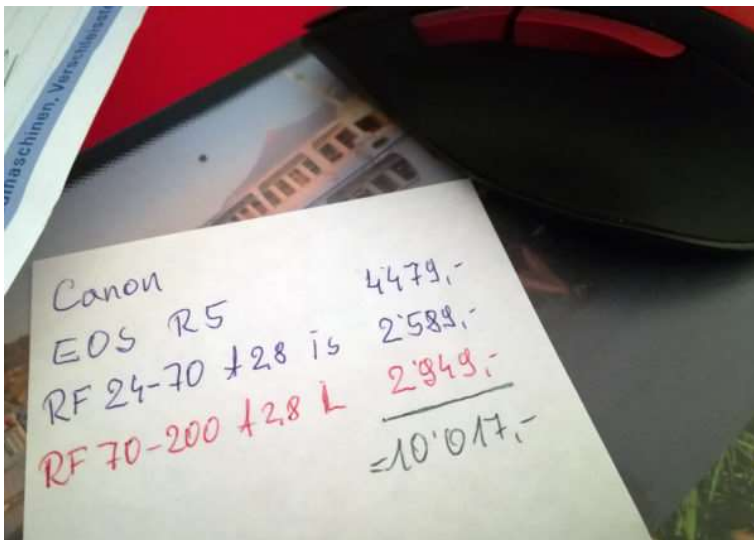 inaschinen, Verschleisste
Canon
EOS R5 4479,-
RF 24-70 f28 is 2'589,-
RF 70-200 f2,8 L 2'949,-
=10'017,-